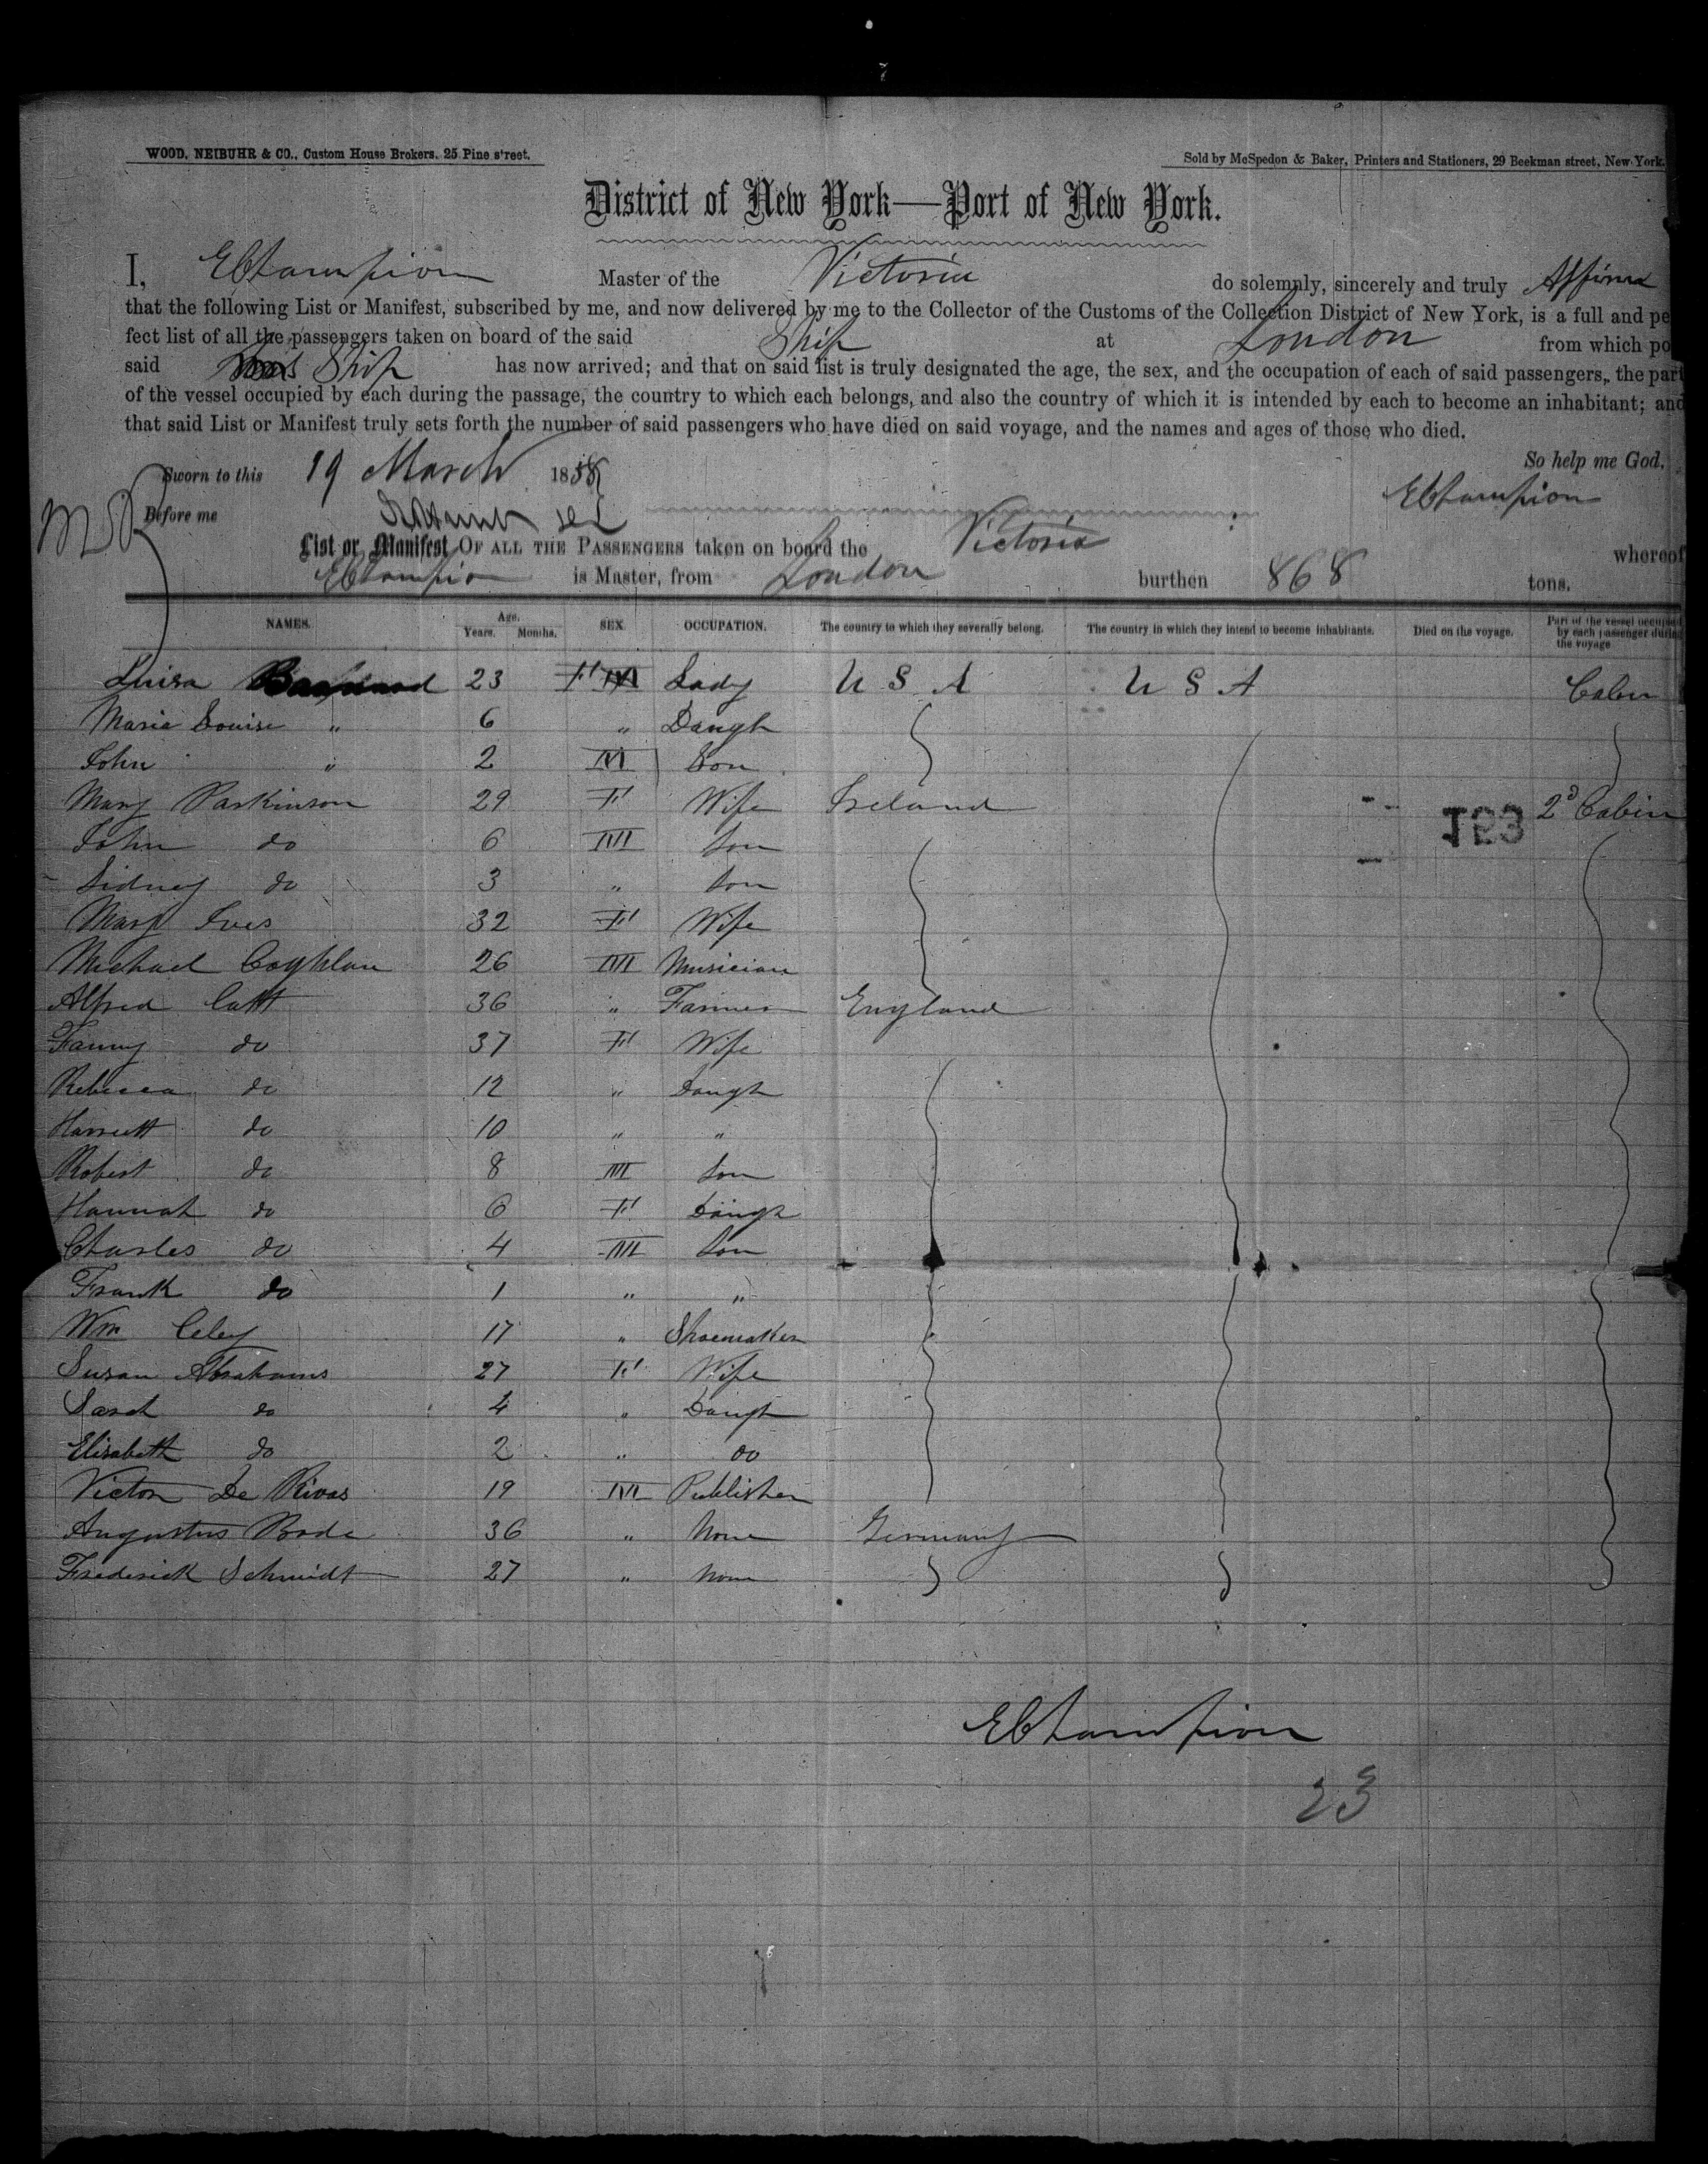 WOOD, NEIBUHR & CO., Custom House Brokers, 25 Pine street.
Sold by McSpedon & Baker, Printers and Stationers, 29 Beekman street, New-York.
District of New York—Port of New York.
I, E Champion Master of the Victoria do solemnly, sincerely and truly Affirm
that the following List or Manifest, subscribed by me, and now delivered by me to the Collector of the Customs of the Collection District of New York, is a full and pe
fect list of all the passengers taken on board of the said Ship at London from which po
said Ship has now arrived; and that on said list is truly designated the age, the sex, and the occupation of each of said passengers, the part
of the vessel occupied by each during the passage, the country to which each belongs, and also the country of which it is intended by each to become an inhabitant; and
that said List or Manifest truly sets forth the number of said passengers who have died on said voyage, and the names and ages of those who died.
So help me God.
Sworn to this 19 March 1858
E Champion
Before me
List or Manifest OF ALL THE PASSENGERS taken on board the Victoria whereof
E Champion is Master, from London burthen 868 tons.
NAMES. Age. Years. Months. SEX. OCCUPATION. The country to which they severally belong. The country in which they intend to become inhabitants. Died on the voyage. Part of the vessel occupied by each passenger during the voyage
Luisa 23 F Lady U S A U S A Cabin
Maria Louise " 6 " Daugh
John " 2 M Son
Mary Parkinson 29 F Wife Ireland 2d Cabin
123
John do 6 M Son
Sidney do 3 " Son
Mary Ives 32 F Wife
Michael Coghlan 26 M Musician
Alfred Catt 36 " Farmer England
Fanny do 37 F Wife
Rebecca do 12 " Daugh
Harriett do 10 " "
Robert do 8 M Son
Hannah do 6 F Daugh
Charles do 4 M Son
Frank do 1 " "
Wm Celey 17 " Shoemaker
Susan Abrahams 27 F Wife
Sarah do 4 " Daugh
Elisabeth do 2 " do
Victor De Rivas 19 M Publisher
Augustus Bode 36 " None Germany
Frederick Schmidt 27 " None
E Champion
23